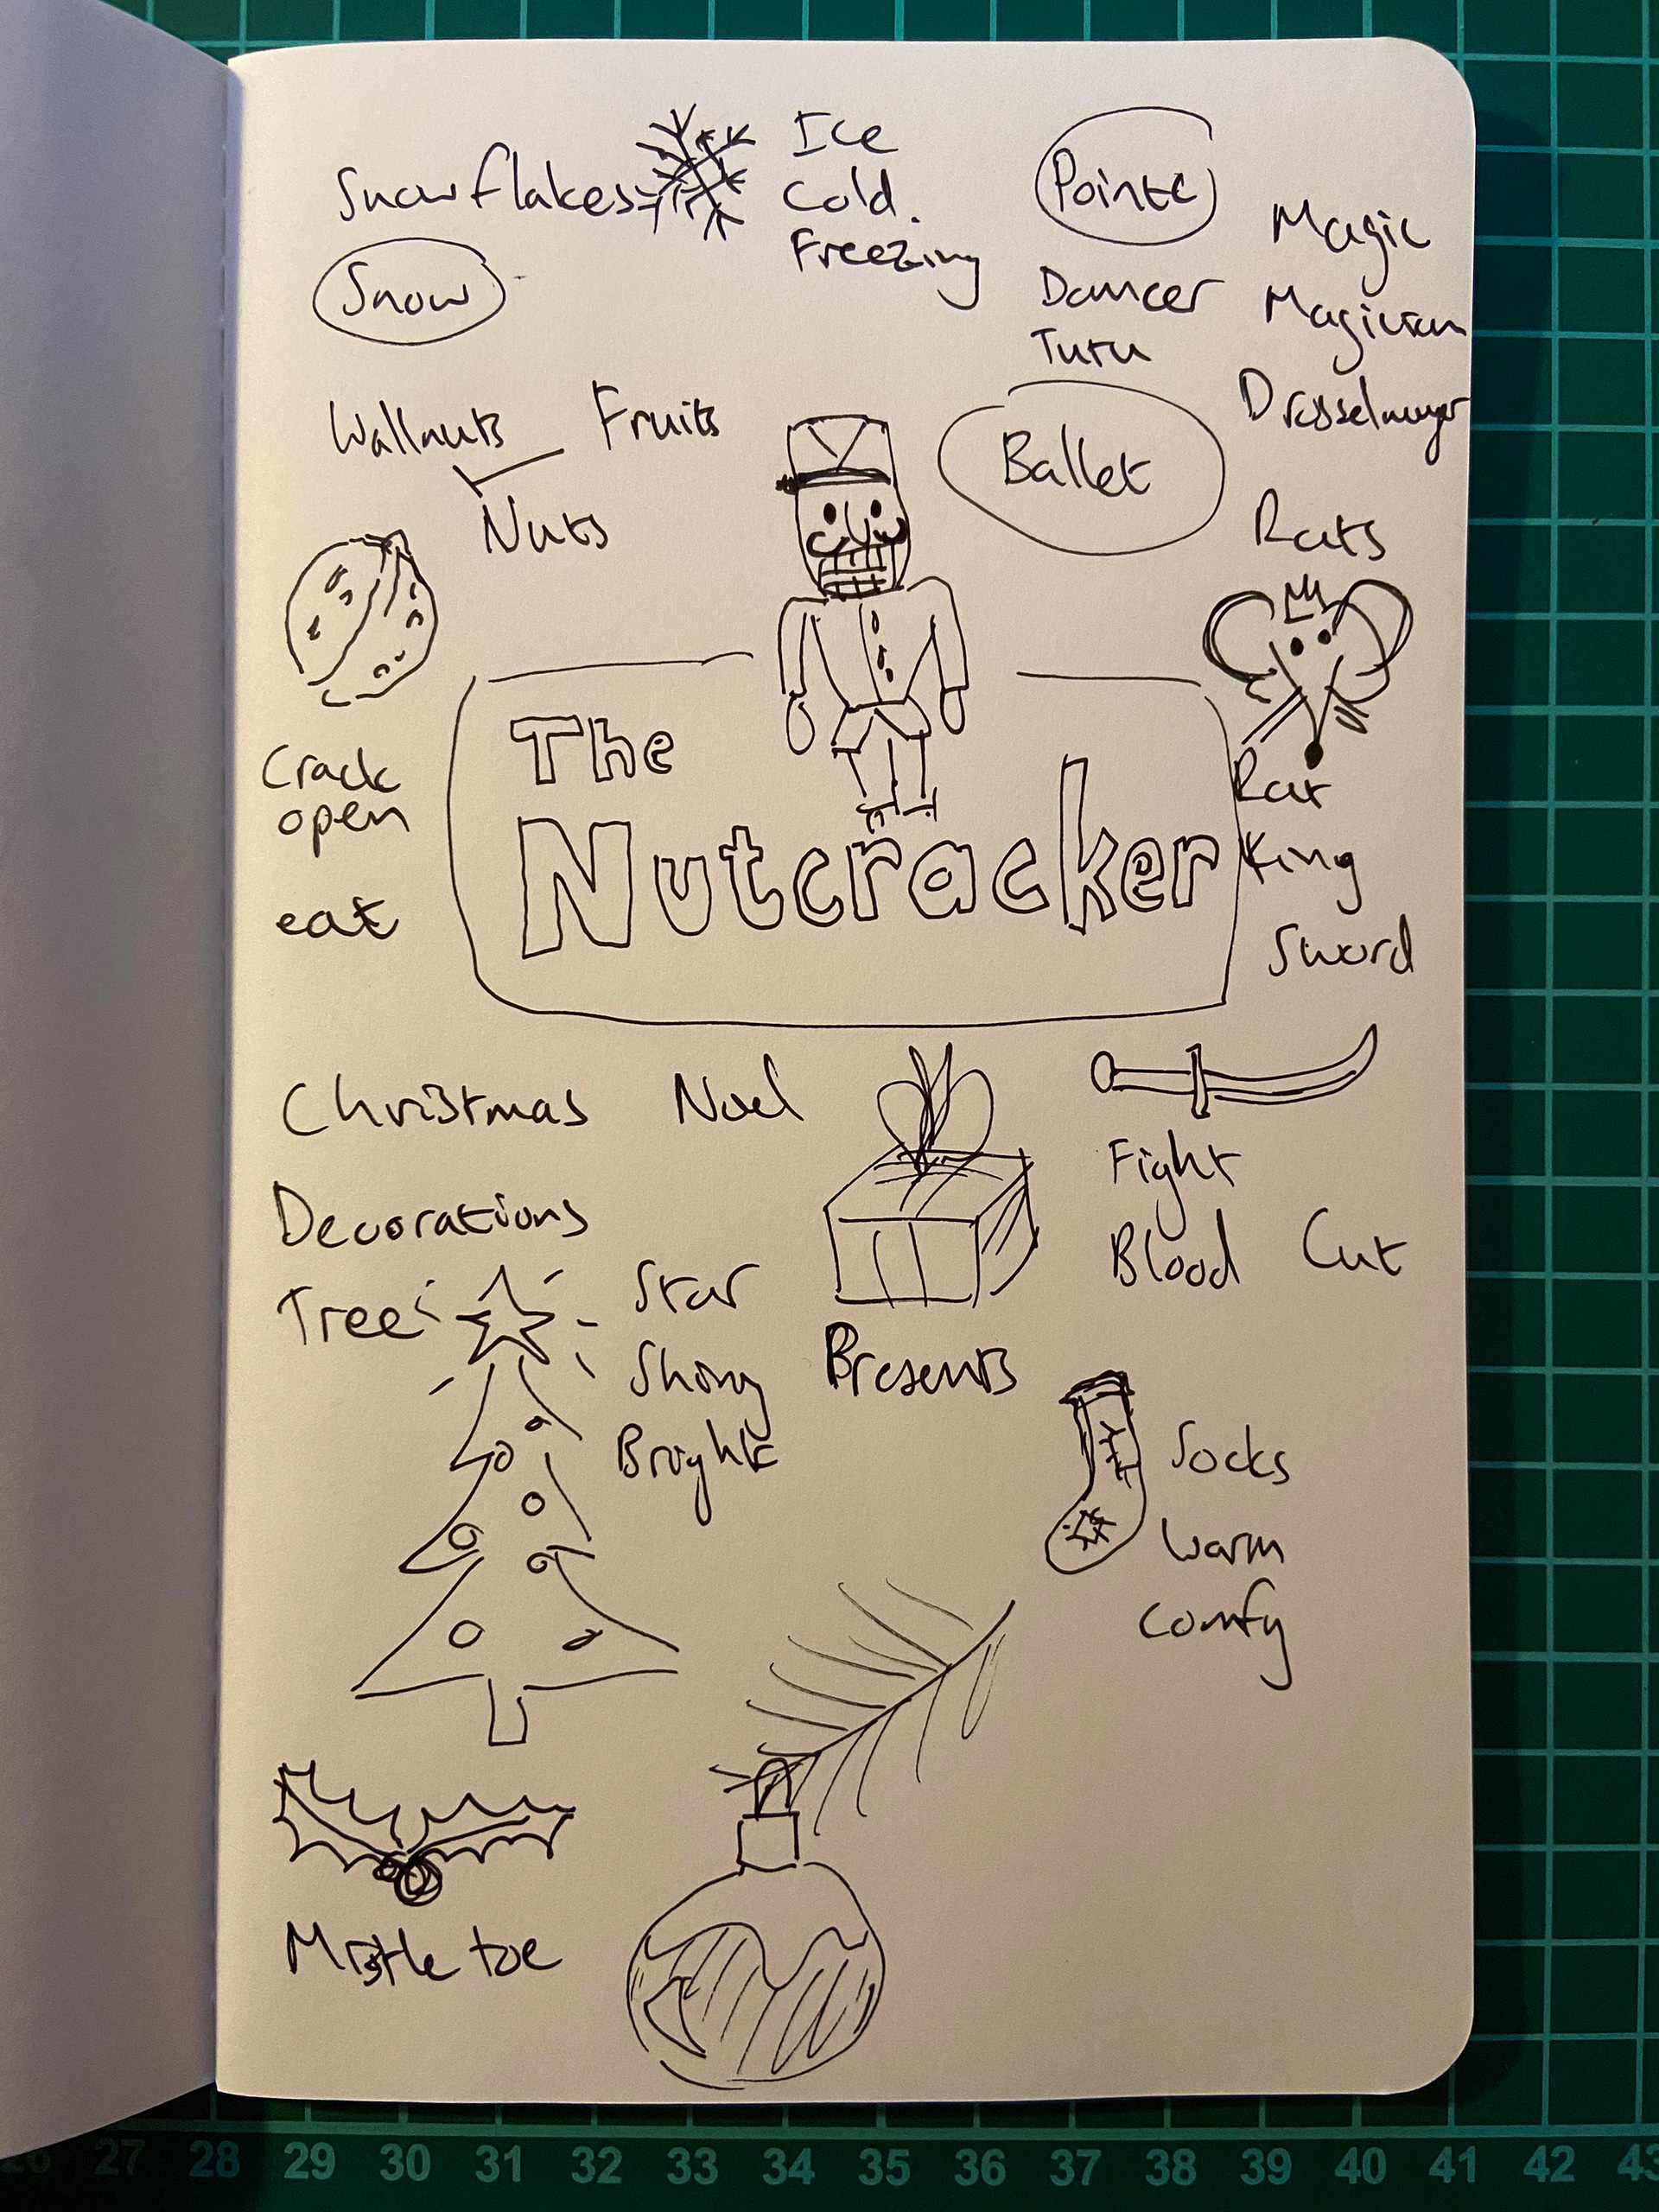 Snowflakes
Ice
Cold.
Freezing
Snow
Pointe
Dancer
Tutu
Magic
Magician
Drosselmeyer
Wallnuts
Fruits
Nuts
Ballet
Rats
The
Nutcracker
Crack
open
eat
Rat
King
Sword
Christmas Noel
Decorations
Tree
Star
Shiny
Bright
Presents
Fight
Blood Cut
Socks
Warm
Comfy
Mistle toe
27 28 29 30 31 32 33 34 35 36 37 38 39 40 41 42 43